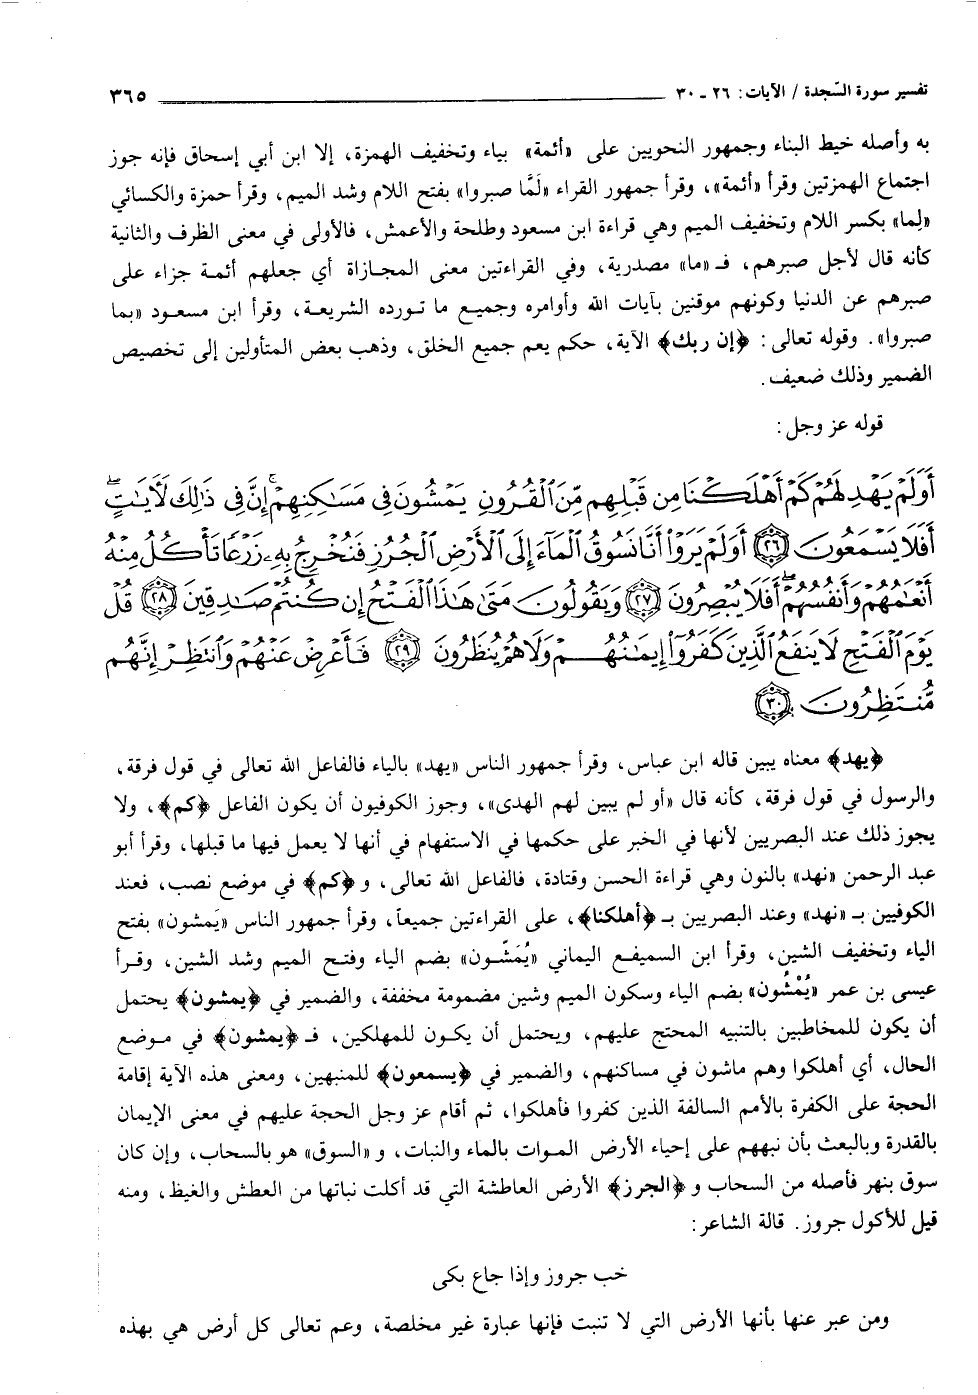 تفسير سورة السّجدة / الآيات: ٢٦ ـ ٣٠ ٣٦٥
به وأصله خيط البناء وجمهور النحويين على «أئمة» بياء وتخفيف الهمزة، إلا ابن أبي إسحاق فإنه جوز
اجتماع الهمزتين وقرأ «أئمة»، وقرأ جمهور القراء «لَمَّا صبروا» بفتح اللام وشد الميم، وقرأ حمزة والكسائي
«لِما» بكسر اللام وتخفيف الميم وهي قراءة ابن مسعود وطلحة والأعمش، فالأولى في معنى الظرف والثانية
كأنه قال لأجل صبرهم، فـ «ما» مصدرية، وفي القراءتين معنى المجازاة أي جعلهم أئمة جزاء على
صبرهم عن الدنيا وكونهم موقنين بآيات الله وأوامره وجميع ما تورده الشريعة، وقرأ ابن مسعود «بما
صبروا». وقوله تعالى: ﴿إن ربك﴾ الآية، حكم يعم جميع الخلق، وذهب بعض المتأولين إلى تخصيص
الضمير وذلك ضعيف.
قوله عز وجل:
أَوَلَمْ يَهْدِ لَهُمْ كَمْ أَهْلَكْنَا مِن قَبْلِهِم مِّنَ ٱلْقُرُونِ يَمْشُونَ فِى مَسَٰكِنِهِمْ ۚ إِنَّ فِى ذَٰلِكَ لَأَيَٰتٍ ۖ
أَفَلَا يَسْمَعُونَ ٢٦ أَوَلَمْ يَرَوْا۟ أَنَّا نَسُوقُ ٱلْمَآءَ إِلَى ٱلْأَرْضِ ٱلْجُرُزِ فَنُخْرِجُ بِهِۦ زَرْعًا تَأْكُلُ مِنْهُ
أَنْعَٰمُهُمْ وَأَنفُسُهُمْ ۖ أَفَلَا يُبْصِرُونَ ٢٧ وَيَقُولُونَ مَتَىٰ هَٰذَا ٱلْفَتْحُ إِن كُنتُمْ صَٰدِقِينَ ٢٨ قُلْ
يَوْمَ ٱلْفَتْحِ لَا يَنفَعُ ٱلَّذِينَ كَفَرُوٓا۟ إِيمَٰنُهُمْ وَلَا هُمْ يُنظَرُونَ ٢٩ فَأَعْرِضْ عَنْهُمْ وَٱنتَظِرْ إِنَّهُم
مُّنتَظِرُونَ ٣٠
﴿يهد﴾ معناه يبين قاله ابن عباس، وقرأ جمهور الناس «يهد» بالياء فالفاعل الله تعالى في قول فرقة،
والرسول في قول فرقة، كأنه قال «أو لم يبين لهم الهدى»، وجوز الكوفيون أن يكون الفاعل ﴿كم﴾، ولا
يجوز ذلك عند البصريين لأنها في الخبر على حكمها في الاستفهام في أنها لا يعمل فيها ما قبلها، وقرأ أبو
عبد الرحمن «نهد» بالنون وهي قراءة الحسن وقتادة، فالفاعل الله تعالى، و ﴿كم﴾ في موضع نصب، فعند
الكوفيين بـ «نهد» وعند البصريين بـ ﴿أهلكنا﴾، على القراءتين جميعاً، وقرأ جمهور الناس «يَمشون» بفتح
الياء وتخفيف الشين، وقرأ ابن السميفع اليماني «يُمَشّون» بضم الياء وفتح الميم وشد الشين، وقرأ
عيسى بن عمر «يُمْشُون» بضم الياء وسكون الميم وشين مضمومة مخففة، والضمير في ﴿يمشون﴾ يحتمل
أن يكون للمخاطبين بالتنبيه المحتج عليهم، ويحتمل أن يكون للمهلكين، فـ ﴿يمشون﴾ في موضع
الحال، أي أهلكوا وهم ماشون في مساكنهم، والضمير في ﴿يسمعون﴾ للمنبهين، ومعنى هذه الآية إقامة
الحجة على الكفرة بالأمم السالفة الذين كفروا فأهلكوا، ثم أقام عز وجل الحجة عليهم في معنى الإيمان
بالقدرة وبالبعث بأن نبههم على إحياء الأرض الموات بالماء والنبات، و «السوق» هو بالسحاب، وإن كان
سوق بنهر فأصله من السحاب و ﴿الجرز﴾ الأرض العاطشة التي قد أكلت نباتها من العطش والغيظ، ومنه
قيل للأكول جروز. قالة الشاعر:
خب جروز وإذا جاع بكى
ومن عبر عنها بأنها الأرض التي لا تنبت فإنها عبارة غير مخلصة، وعم تعالى كل أرض هي بهذه